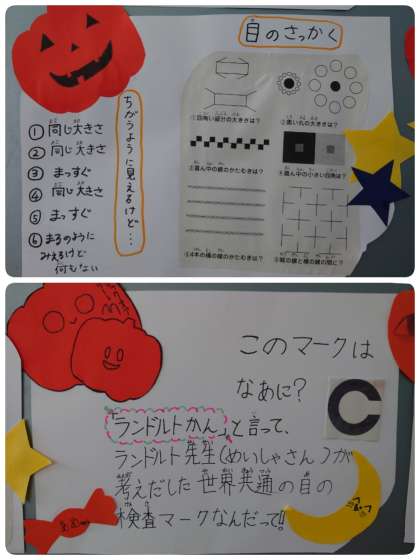 目のさっかく
ちがうように見えるけど…
① 同じ大きさ
② 同じ大きさ
③ まっすぐ
④ 同じ大きさ
⑤ まっすぐ
⑥ まるのように
みえるけど
何もない
①四角い部分の大きさは?
②黒い丸の大きさは?
③真ん中の線のかたむきは?
④真ん中の小さい四角は?
⑤4本の横の線のかたむきは?
⑥縦の線と横の線の間に?
このマークは
なあに?
「ランドルトかん」と言って、
ランドルト先生(めいしゃさん)が
考えだした世界共通の目の
検査マークなんだって!!